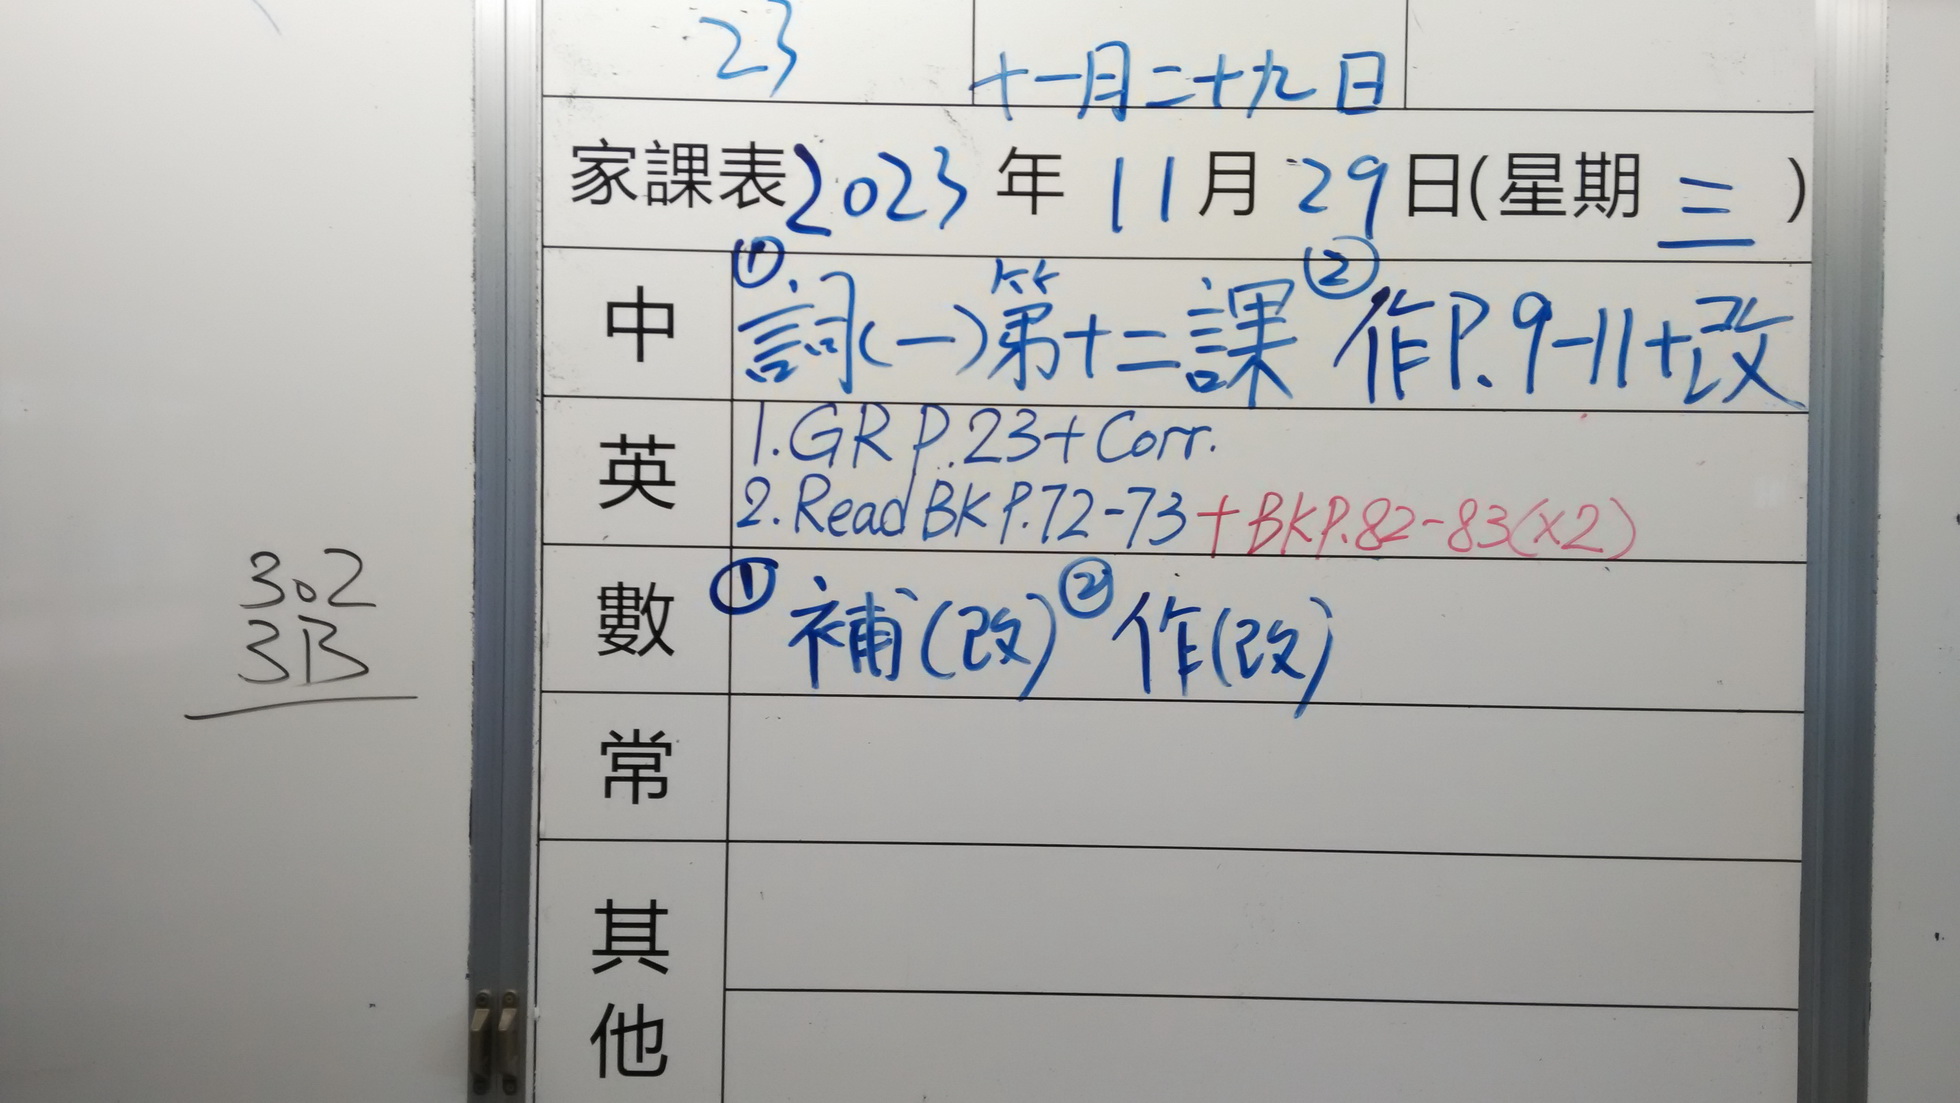 23
十一月二十九日
家課表2023年11月29日(星期三)
中 ①詞(一)第十二課 ②作P.9-11+改
英 1.GR P.23+Corr.
2.Read BK P.72-73+BKP.82-83(x2)
數 ①補(改) ②作(改)
常
其他
302
3B